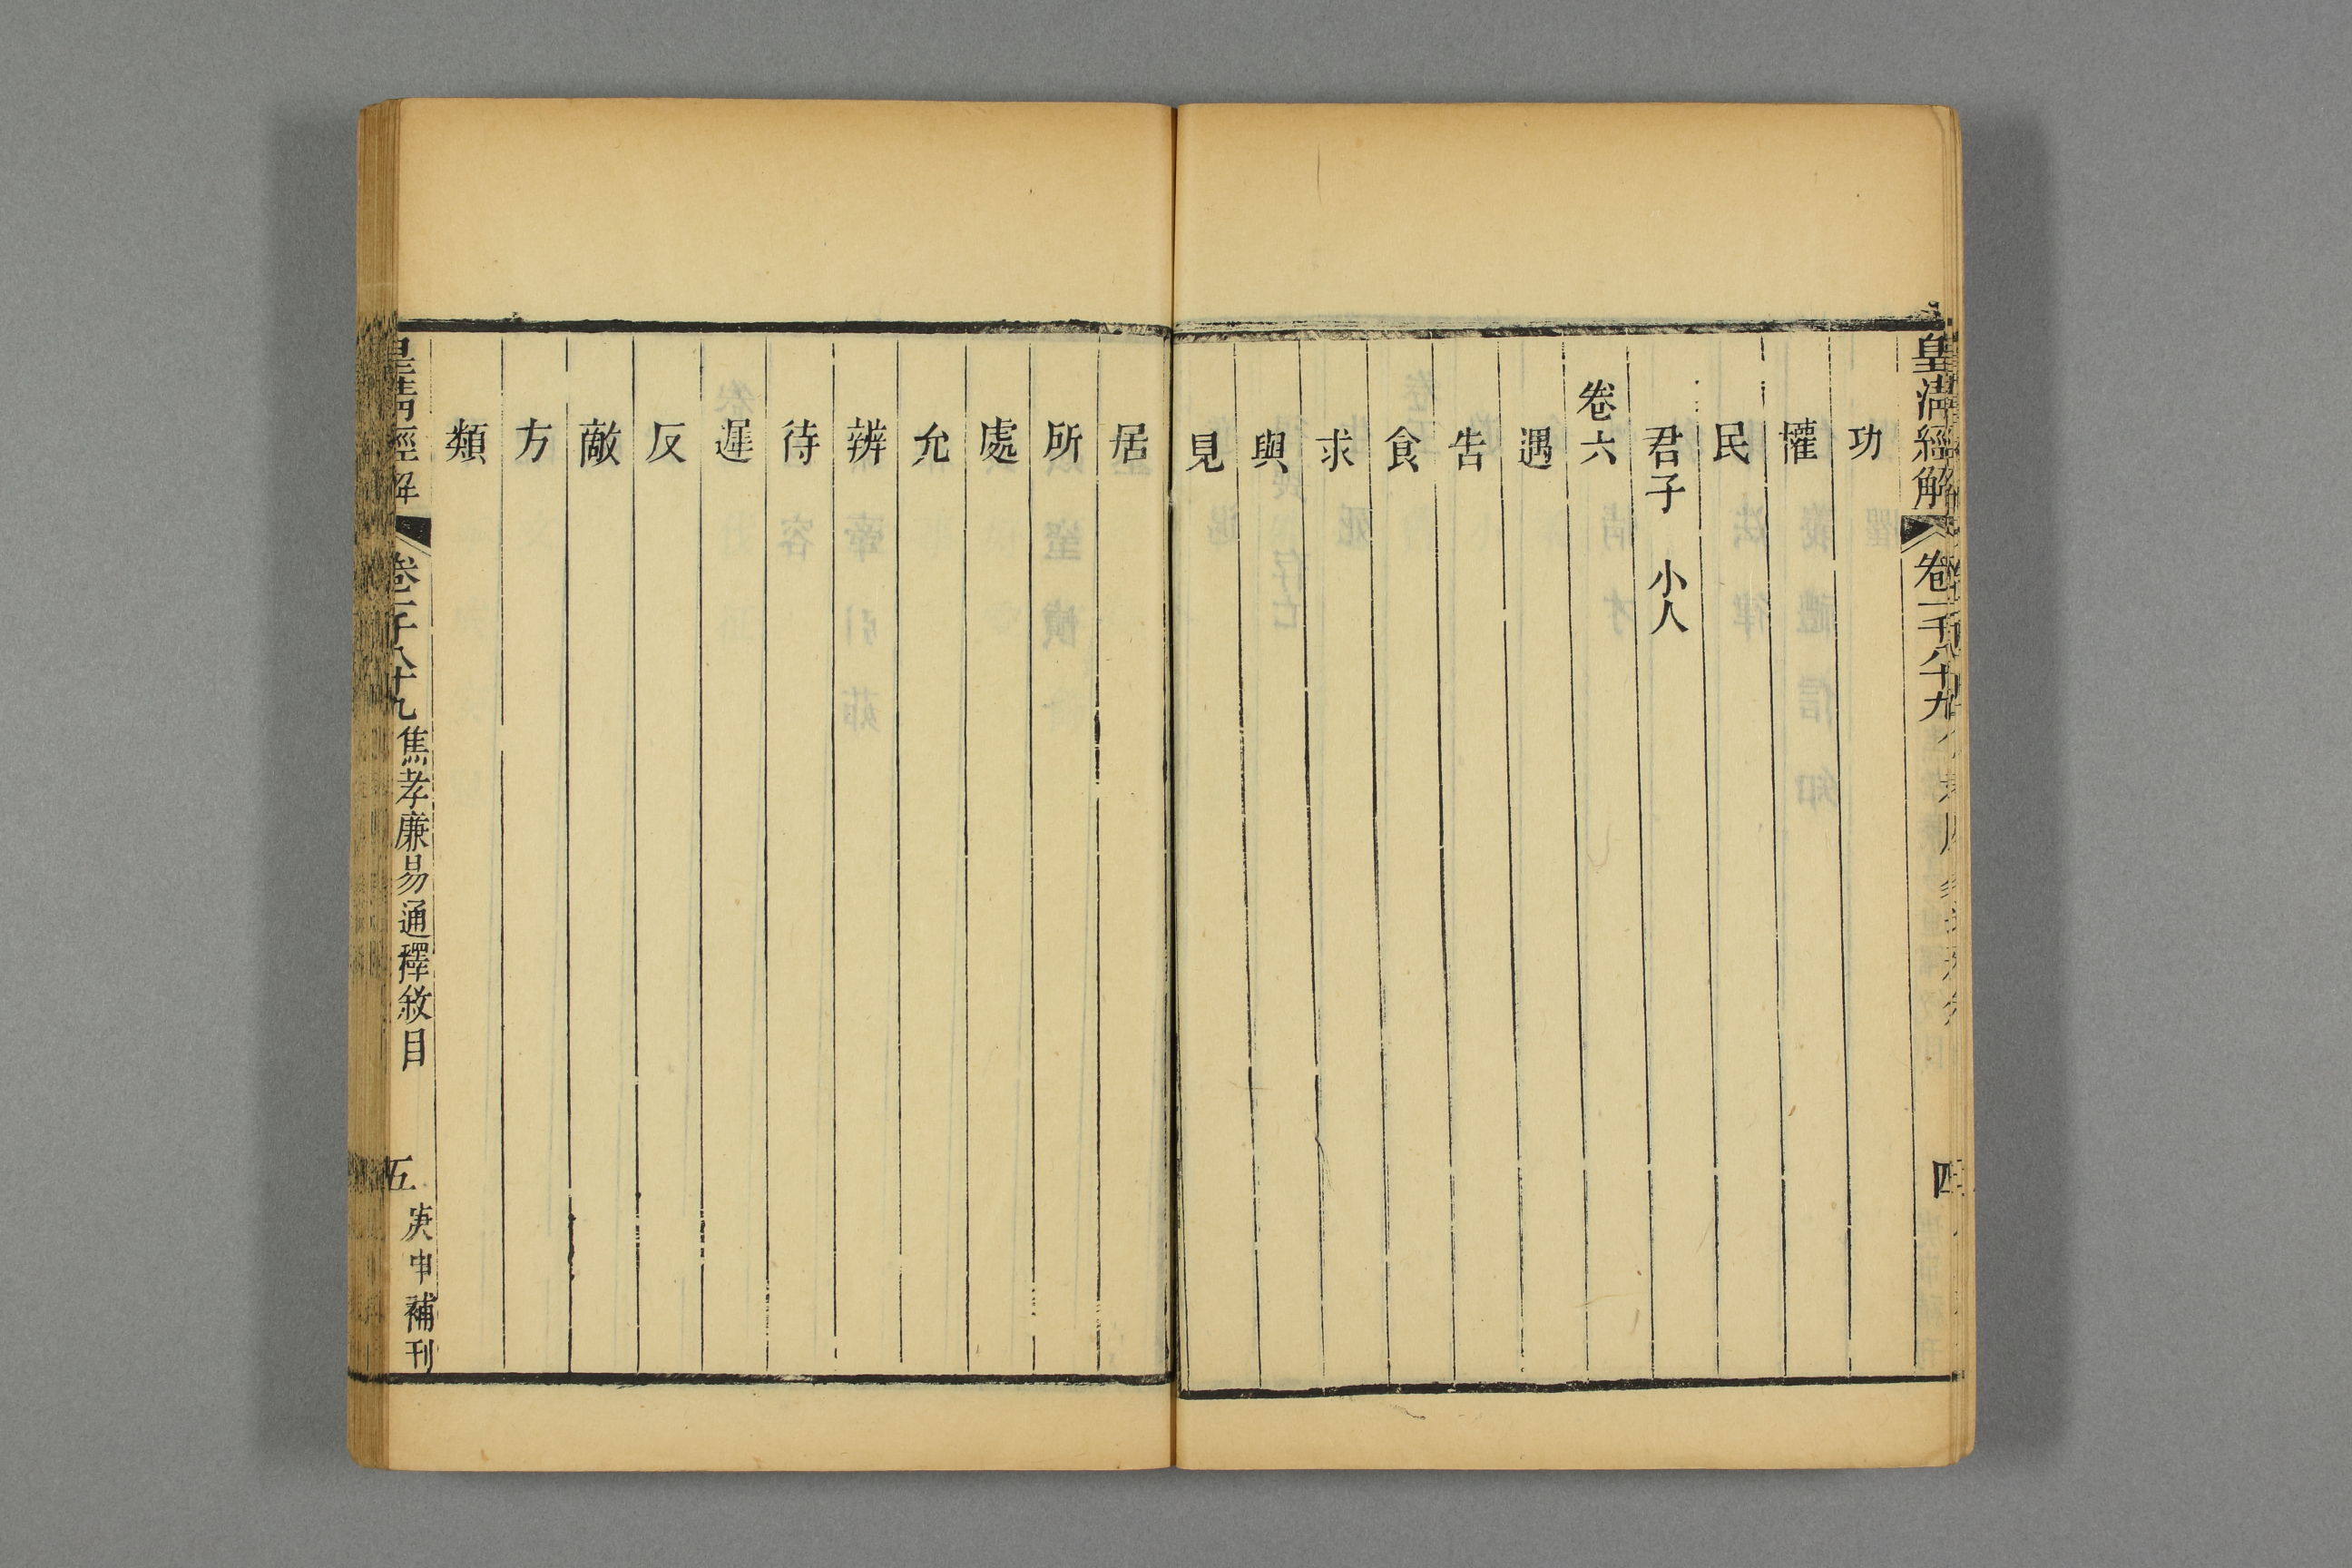 皇清經解 卷一千八十九
四
功
懽
民
君子 小人
卷六
遇
告
食
求
與
見
居
所
處
允
辨
待
遲
反
敵
方
類
皇清經解 卷一千八十九 焦孝廉易通釋敘目 五 庚申補刊